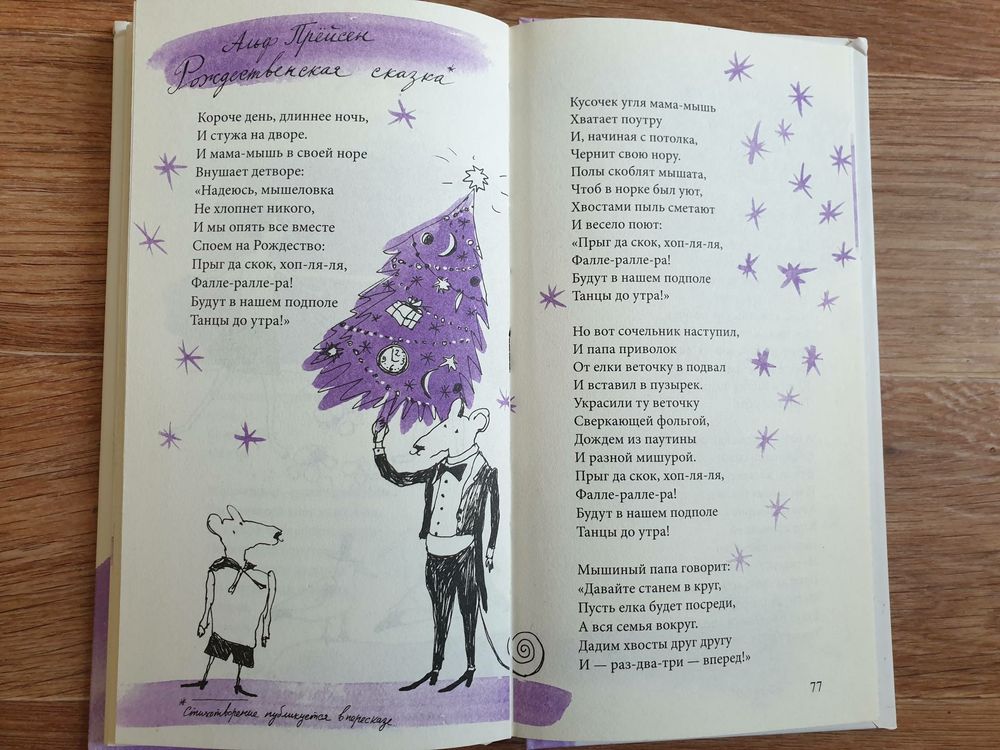 Альф Прёйсен
Рождественская сказка*
Короче день, длиннее ночь,
И стужа на дворе.
И мама-мышь в своей норе
Внушает детворе:
«Надеюсь, мышеловка
Не хлопнет никого,
И мы опять все вместе
Споем на Рождество:
Прыг да скок, хоп-ля-ля,
Фалле-ралле-ра!
Будут в нашем подполе
Танцы до утра!»
*Стихотворение публикуется в пересказе
Кусочек угля мама-мышь
Хватает поутру
И, начиная с потолка,
Чернит свою нору.
Полы скоблят мышата,
Чтоб в норке был уют,
Хвостами пыль сметают
И весело поют:
«Прыг да скок, хоп-ля-ля,
Фалле-ралле-ра!
Будут в нашем подполе
Танцы до утра!»
Но вот сочельник наступил,
И папа приволок
От елки веточку в подвал
И вставил в пузырек.
Украсили ту веточку
Сверкающей фольгой,
Дождем из паутины
И разной мишурой.
Прыг да скок, хоп-ля-ля,
Фалле-ралле-ра!
Будут в нашем подполе
Танцы до утра!
Мышиный папа говорит:
«Давайте станем в круг,
Пусть елка будет посреди,
А вся семья вокруг.
Дадим хвосты друг другу
И — раз-два-три — вперед!»
77